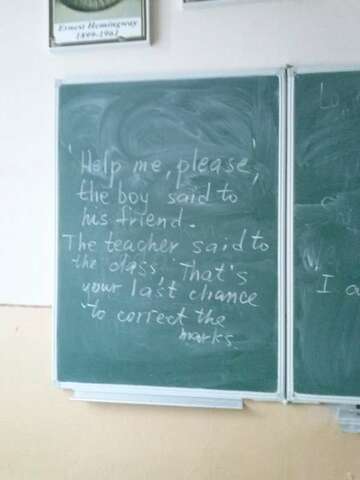 Ernest Hemingway
1899-1961
"Help me, please,"
the boy said to
his friend.
The teacher said to
the class, "That's
your last chance
to correct the
marks.
I